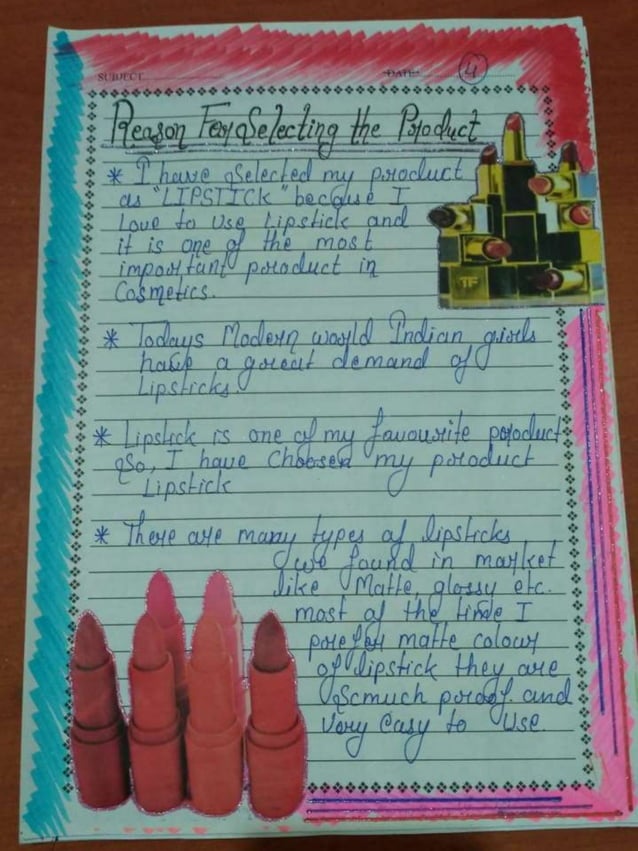 SUBJECT
DATE
4
Reason For Selecting the Product
* I have Selected my product
as "LIPSTICK" because I
Love to Use Lipstick and
it is one of the most
important product in
Cosmetics.
TF
* Todays Modern world Indian girls
have a great demand of
Lipsticks.
* Lipstick is one of my favourite product
So, I have Choosen my product
Lipstick
* There are many types of lipsticks
we found in market
like Matte, glossy etc.
most of the time I
prefer matte colour
of lipstick they are
Scmuch proof. and
Very easy to use.